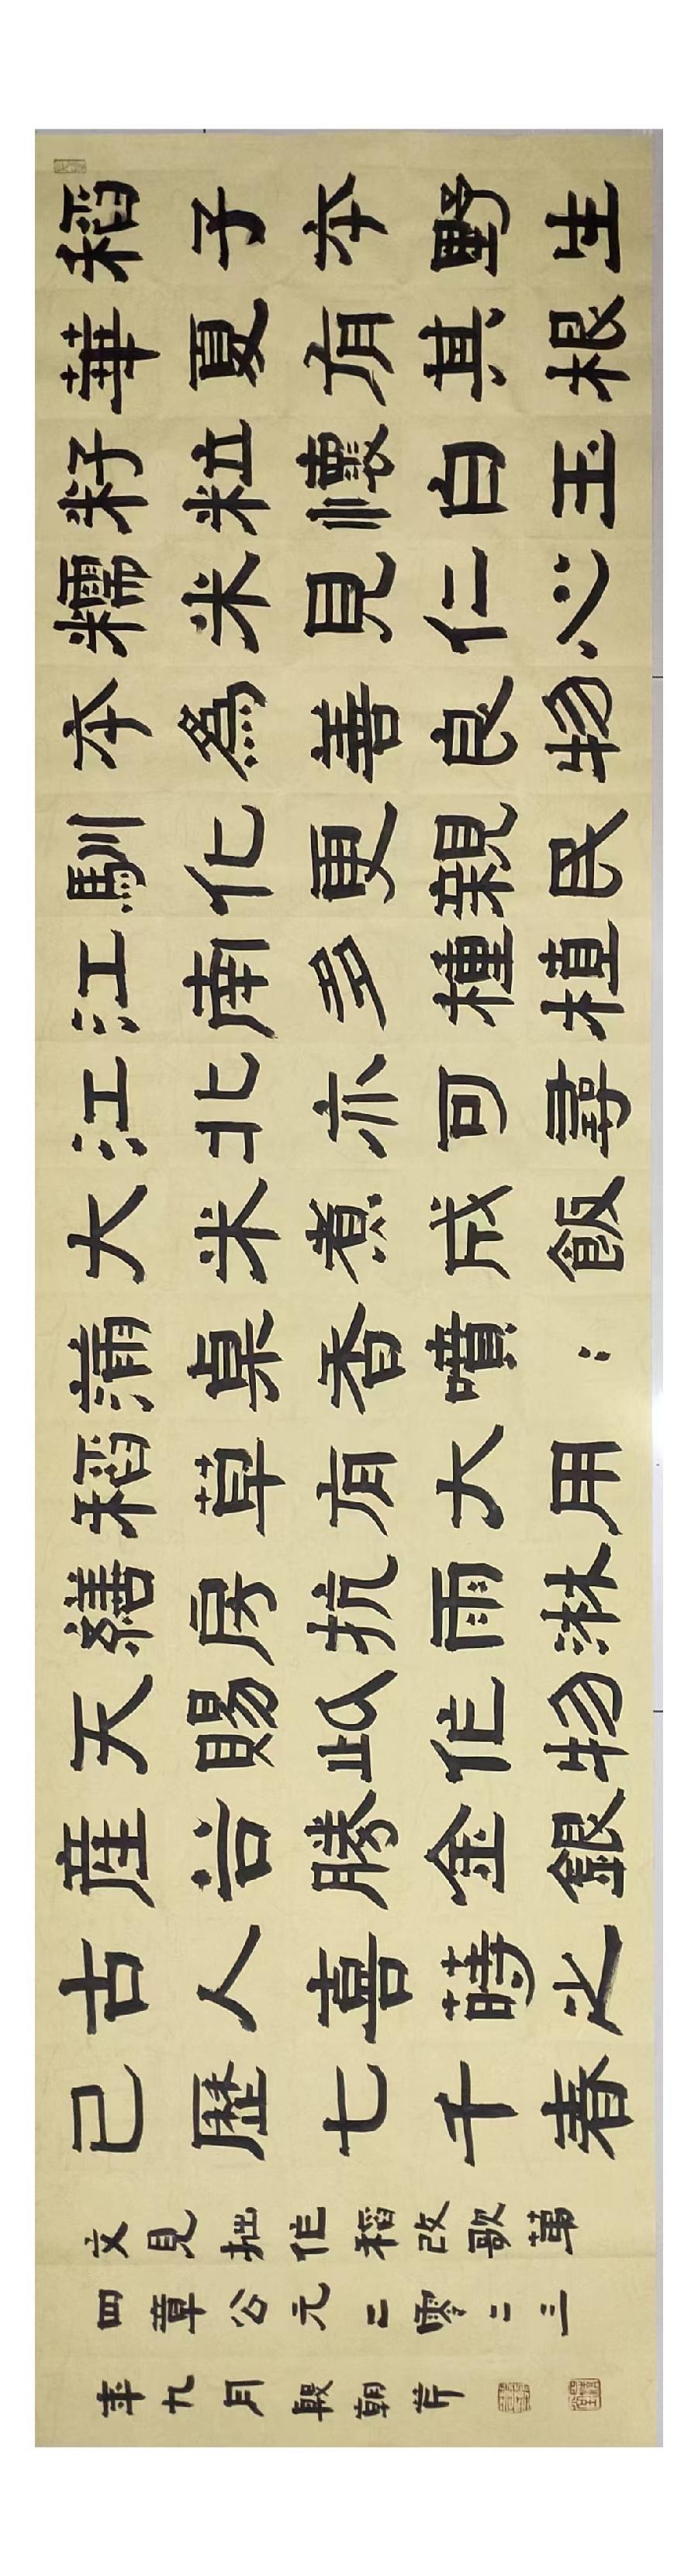 稻子本野生
華夏有其根
籽粒懷白玉
糯米見仁心
本為善良物
馴化更親民
江南多種植
江北亦可尋
大米煮成飯
滿桌香噴：
稻草有大用
繕房抗雨淋
天賜此作物
産谷勝金銀
古人喜蒔之
已歷七千春
文見拙作稻改歌第
四章公元二零二三
年九月殷朝芹